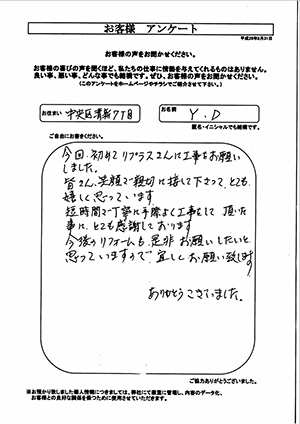 お客様 アンケート
平成29年8月31日
お客様の声をお聞かせください。
お客様の喜びの声を聞くほど、私たちの仕事に情熱を与えてくれるものはありません。
良い事、悪い事、どんな事でも結構です。ぜひ、お客様の声をお聞かせください。
(このアンケートをホームページやチラシでご紹介させて下さい。)
お住まい 中央区清新7丁目
お名前 Y.D
匿名・イニシャルでも結構です。
ご自由にお書きください。
今回、初めてリプラスさんに工事をお願い
しました。
皆さん、笑顔で親切に接して下さって、とても
嬉しく思っています
短時間で丁寧に手際よく工事をして頂いた
事に、とても感謝しております
今後のリフォームも、是非お願いしたいと
思っていますので、宜しくお願い致します
ありがとうございました。
ご協力ありがとうございました。
※お預かり致しました個人情報につきましては、弊社にて厳重に管理し、内容のデータ化、
お客様との良好な関係を保つために使用させていただきます。